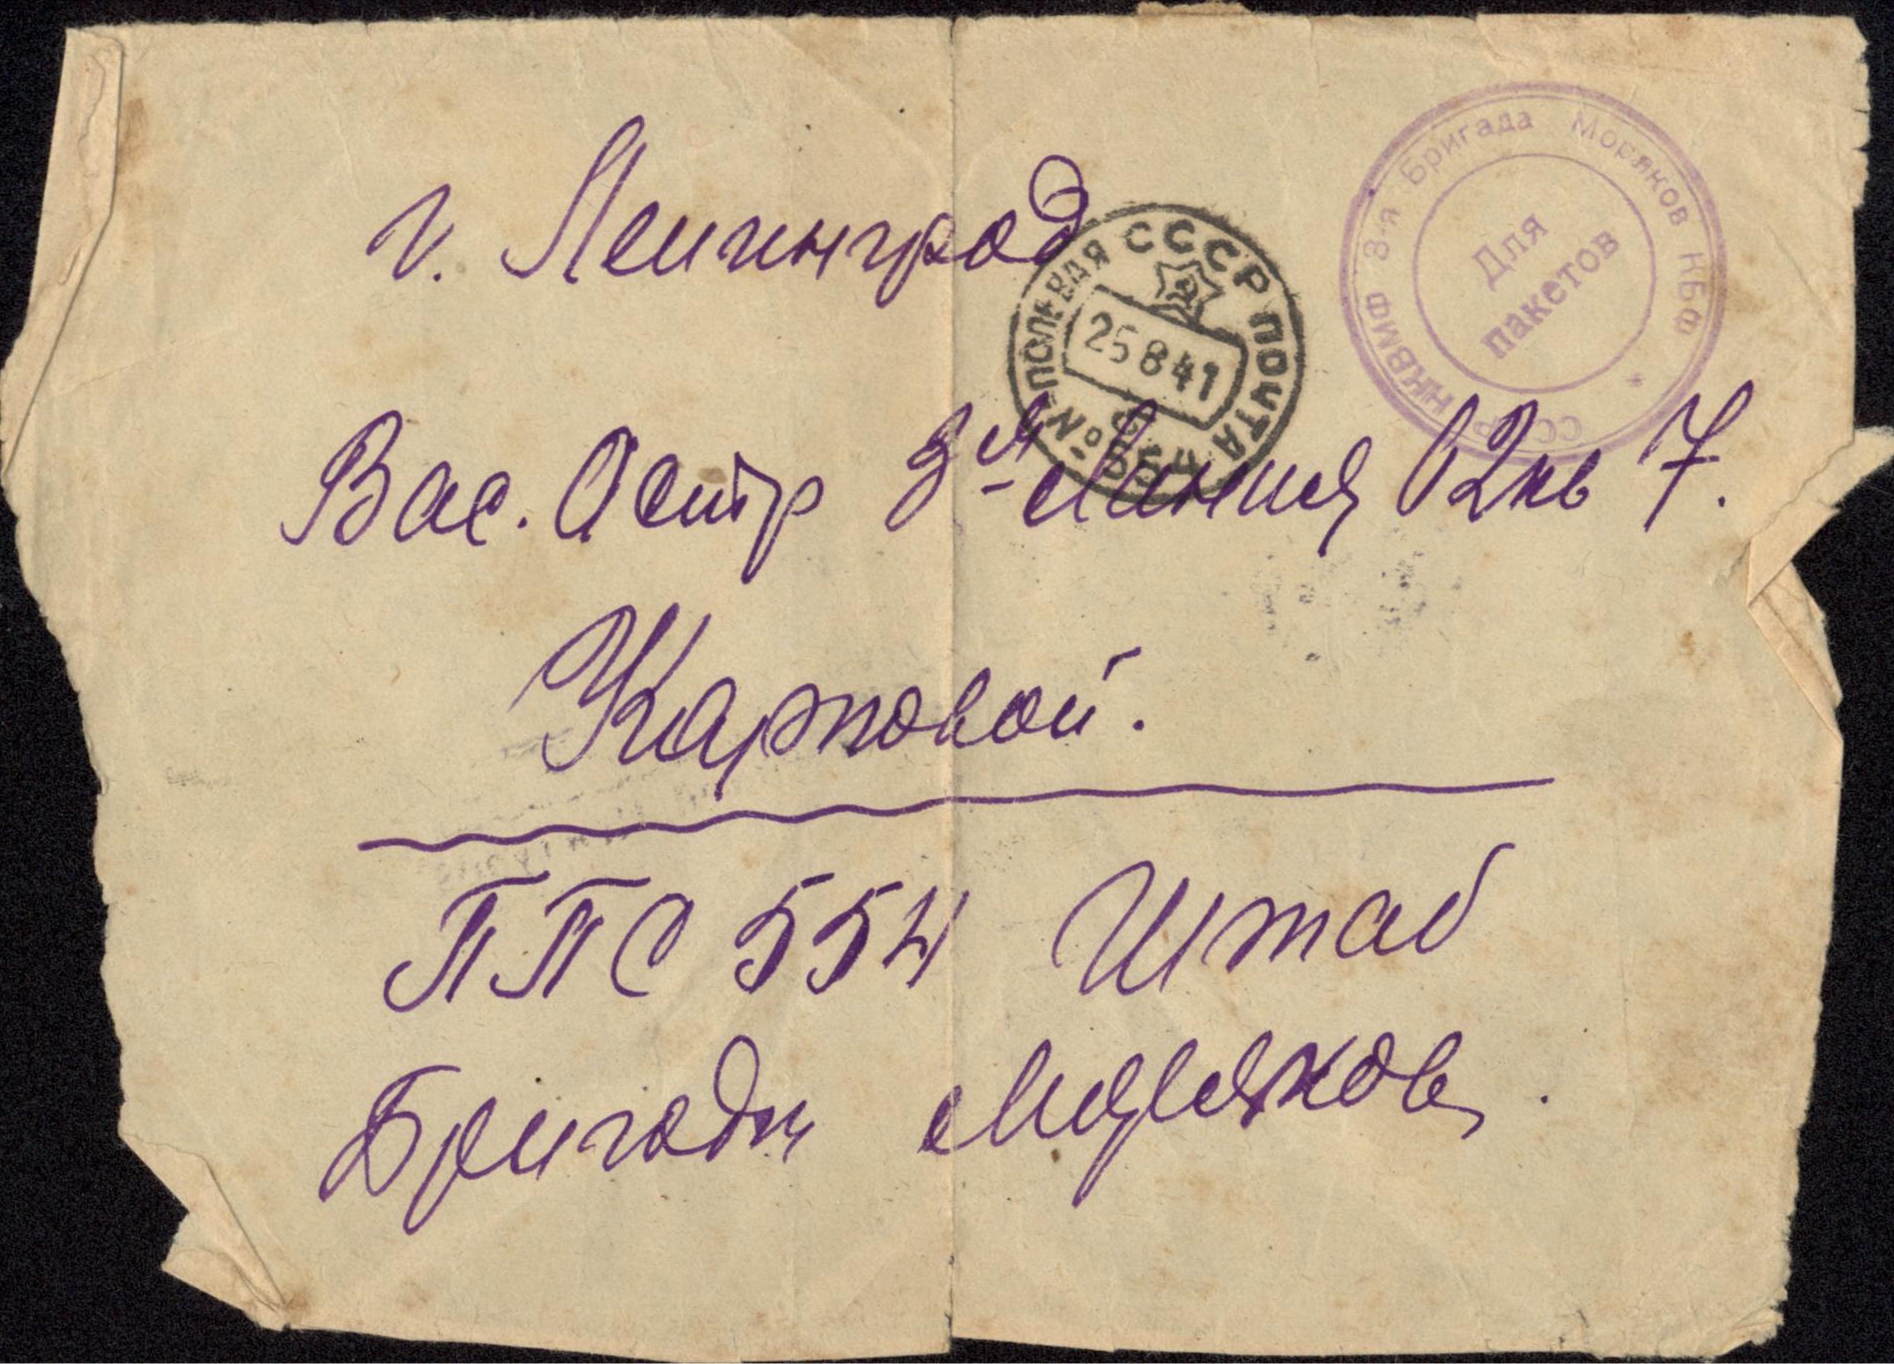 г. Ленинград
СССР ПОЧТА
ПОЛЕВАЯ
25 8 41
№ 554
СССР НКВМФ 3-я Бригада Моряков КБФ *
Для
пакетов
Вас. Остр 3я Линия 62 кв 7.
Карповой.
ППС 554 Штаб
Бригады Моряков.